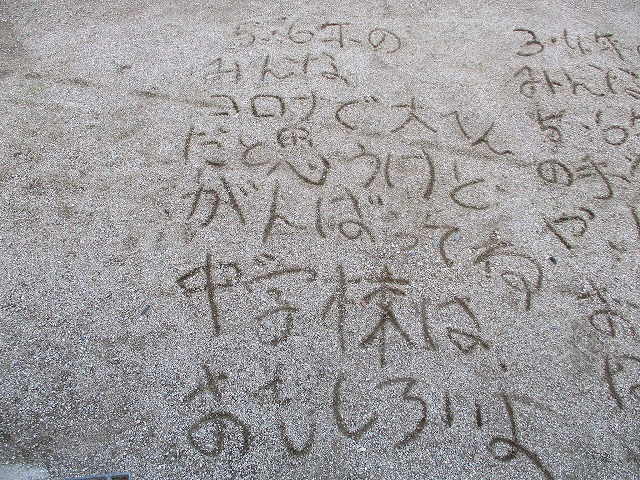 5.6年の
みんな
コロナで大へん
だと思うけど
がんばってね
中学校は
おもしろいよ
3.4年
みんな
5.6
の手